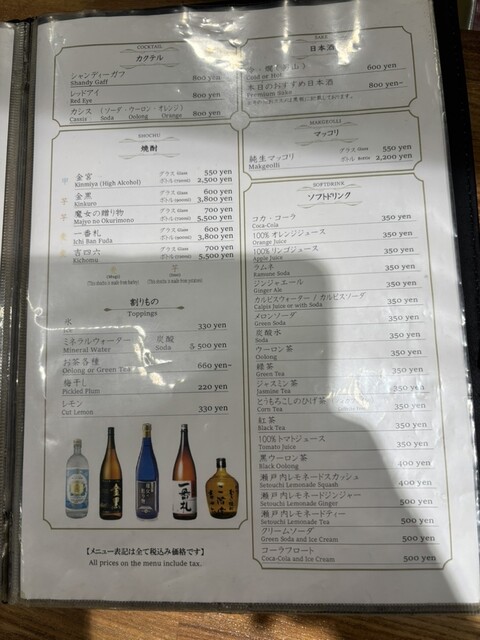 COCKTAIL
カクテル
シャンディーガフ
Shandy Gaff 800 yen
レッドアイ
Red Eye 800 yen
カシス （ソーダ・ウーロン・オレンジ）
Cassis Soda Oolong Orange 800 yen
SHOCHU
焼酎
金宮 グラス Glass 550 yen
Kinmiya (High Alcohol) ボトル 2,500 yen
金黒 グラス Glass 600 yen
Kinkuro ボトル 3,800 yen
魔女の贈り物 グラス Glass 700 yen
Majyo no Okurimono ボトル 5,500 yen
一番札 グラス Glass 600 yen
Ichi Ban Fuda ボトル 3,800 yen
吉四六 グラス Glass 700 yen
Kichomu ボトル 5,500 yen
割りもの
Toppings
氷
Ice 330 yen
ミネラルウォーター 炭酸
Mineral Water Soda 各500 yen
お茶各種
Oolong or Green Tea 660 yen~
梅干し
Pickled Plum 220 yen
レモン
Cut Lemon 330 yen
金黒
一番札
【メニュー表記は全て税込み価格です】
All prices on the menu include tax.
SAKE
日本酒
Cold or Hot 600 yen
本日のおすすめ日本酒
Premium Sake 800 yen~
MAKGEOLLI
マッコリ
純生マッコリ グラス Glass 550 yen
Makgeolli ボトル Bottle 2,200 yen
SOFTDRINK
ソフトドリンク
コカ・コーラ
Coca-Cola 350 yen
100%オレンジジュース
Orange Juice 350 yen
100%リンゴジュース
Apple Juice 350 yen
ラムネ
Ramune Soda 350 yen
ジンジャエール
Ginger Ale 350 yen
カルピスウォーター / カルピスソーダ
Calpis Juice or with Soda 350 yen
メロンソーダ
Green Soda 350 yen
炭酸水
Soda 350 yen
ウーロン茶
Oolong 350 yen
緑茶
Green Tea 350 yen
ジャスミン茶
Jasmine Tea 350 yen
とうもろこしのひげ茶
Corn Tea 350 yen
紅茶
Black Tea 350 yen
100%トマトジュース
Tomato Juice 350 yen
黒ウーロン茶
Black Oolong 400 yen
瀬戸内レモネードスカッシュ
Setouchi Lemonade Squash 400 yen
瀬戸内レモネードジンジャー
Setouchi Lemonade Ginger 500 yen
瀬戸内レモネードティー
Setouchi Lemonade Tea 500 yen
クリームソーダ
Green Soda and Ice Cream 500 yen
コーラフロート
Coca-Cola and Ice Cream 500 yen